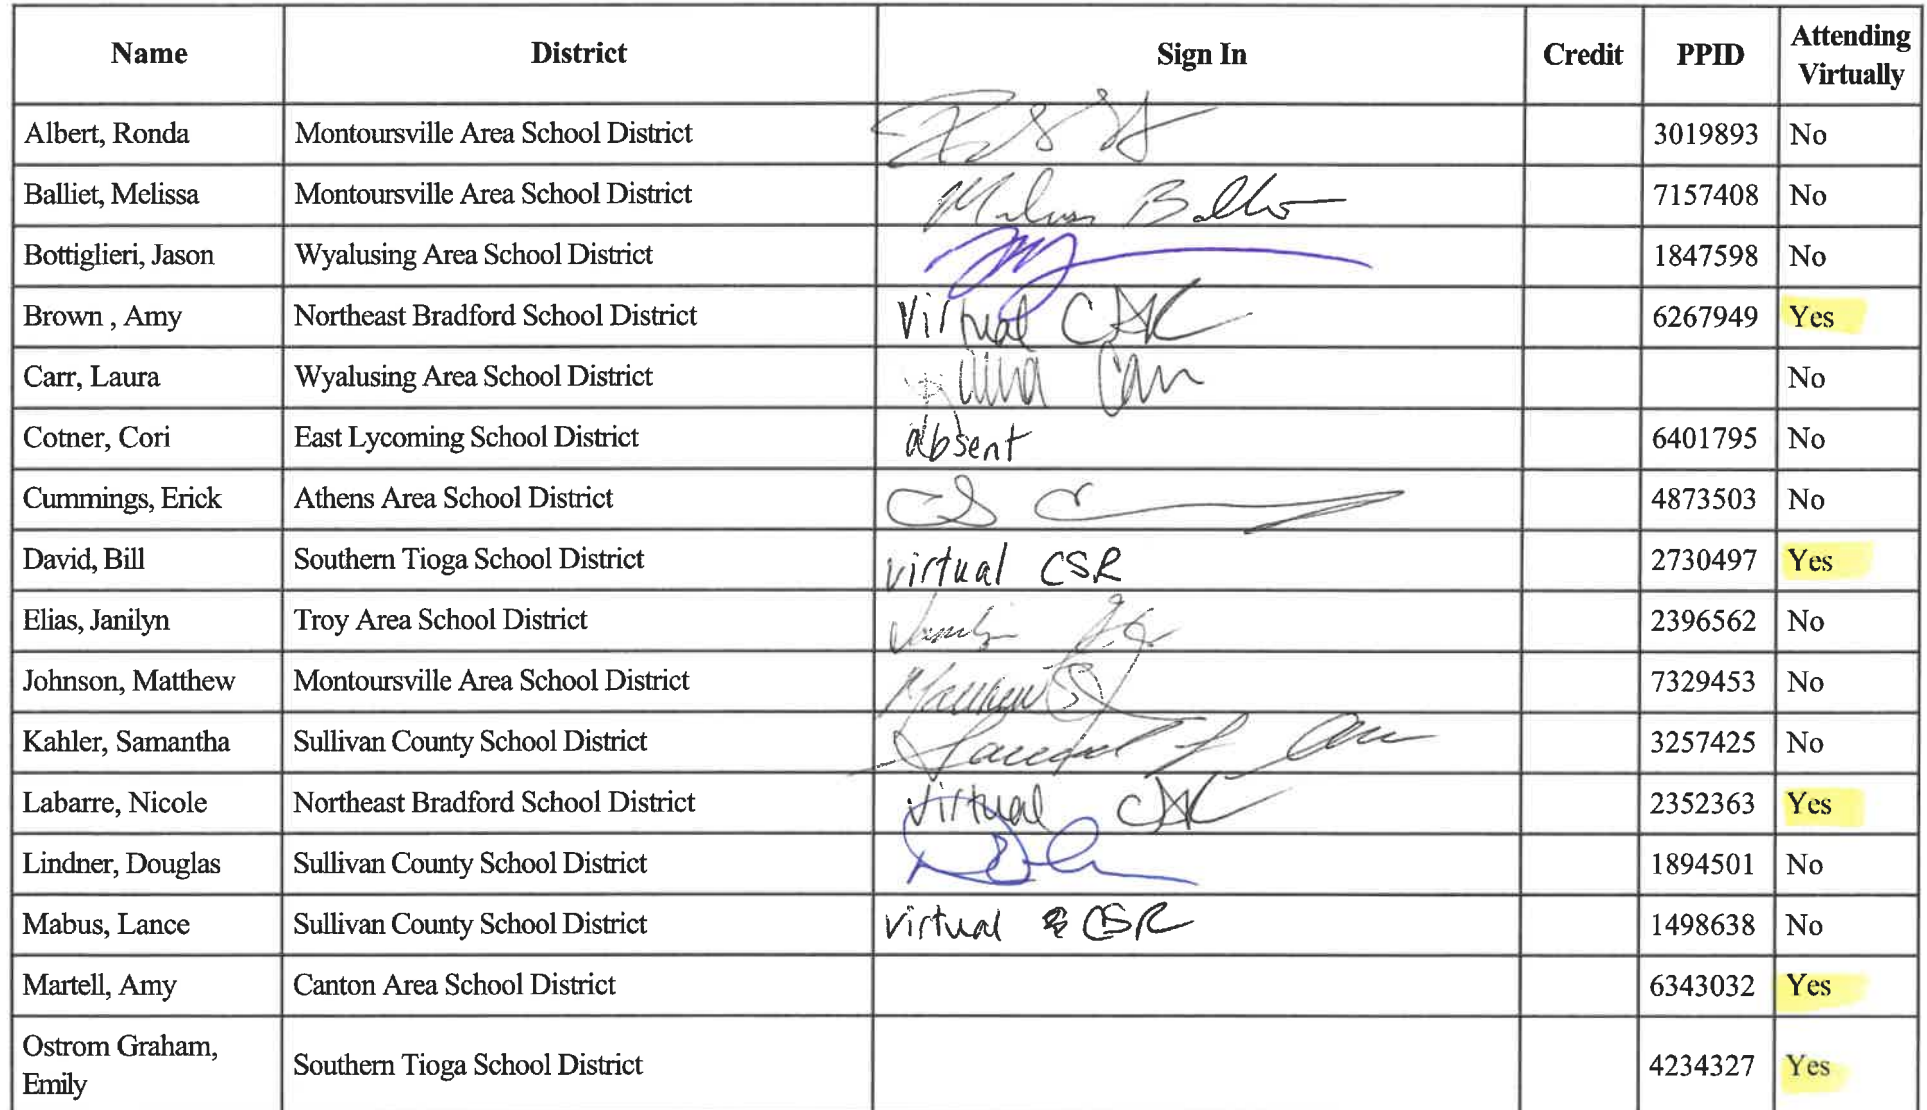 Name District Sign In Credit PPID Attending Virtually
Albert, Ronda Montoursville Area School District 3019893 No
Balliet, Melissa Montoursville Area School District 7157408 No
Bottiglieri, Jason Wyalusing Area School District 1847598 No
Brown , Amy Northeast Bradford School District virtual 6267949 Yes
Carr, Laura Wyalusing Area School District Laura Carr No
Cotner, Cori East Lycoming School District absent 6401795 No
Cummings, Erick Athens Area School District 4873503 No
David, Bill Southern Tioga School District virtual CSR 2730497 Yes
Elias, Janilyn Troy Area School District 2396562 No
Johnson, Matthew Montoursville Area School District Matthew 7329453 No
Kahler, Samantha Sullivan County School District 3257425 No
Labarre, Nicole Northeast Bradford School District virtual 2352363 Yes
Lindner, Douglas Sullivan County School District 1894501 No
Mabus, Lance Sullivan County School District virtual CSR 1498638 No
Martell, Amy Canton Area School District 6343032 Yes
Ostrom Graham,
Emily Southern Tioga School District 4234327 Yes